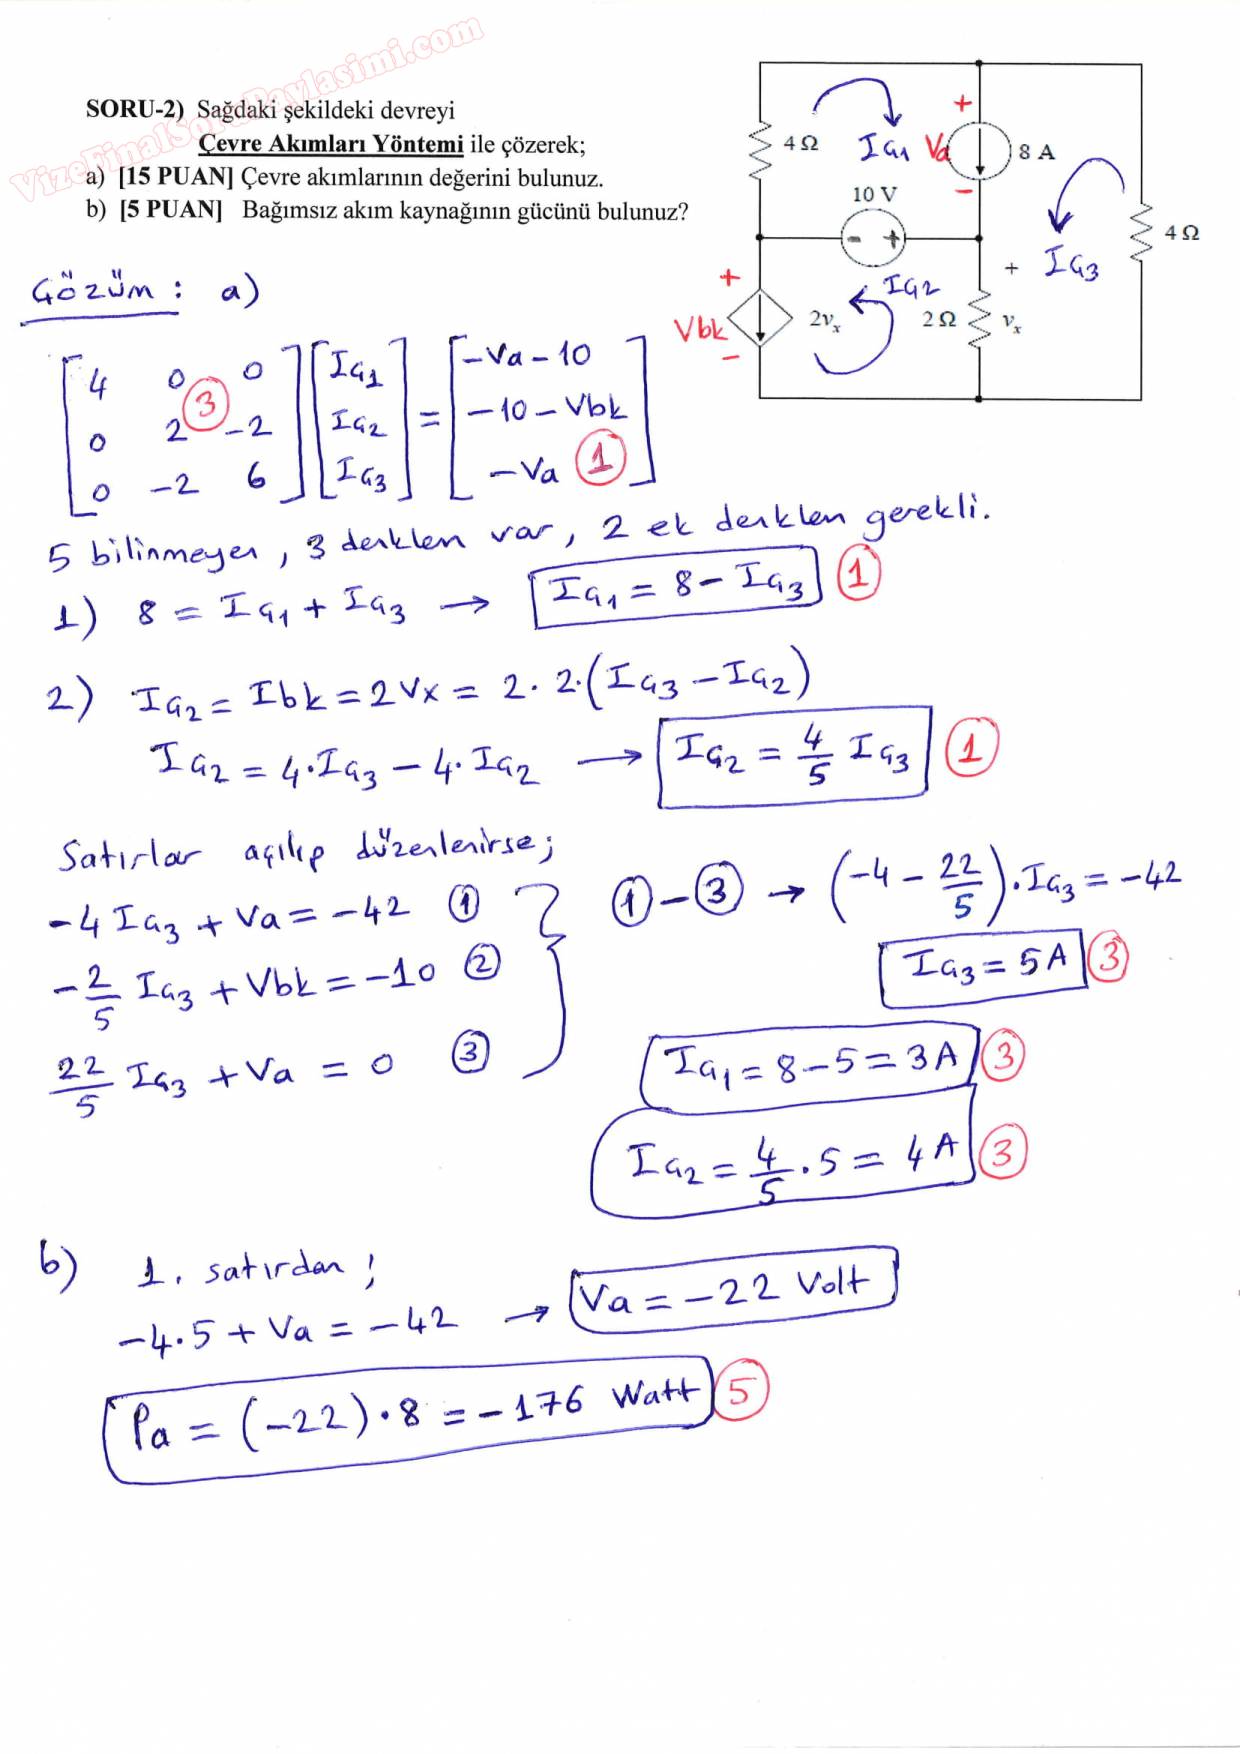 VizeFinalSoruPaylasimi.com
SORU-2) Sağdaki şekildeki devreyi
Çevre Akımları Yöntemi ile çözerek;
a) [15 PUAN] Çevre akımlarının değerini bulunuz.
b) [5 PUAN] Bağımsız akım kaynağının gücünü bulunuz?
4 Ω
IG1
Va
+
-
8 A
10 V
- +
4 Ω
IG3
+
Vbk
-
2vx
IG2
2 Ω
+
vx
Çözüm : a)
[4 0 0] [IG1] = [-Va - 10]
[0 2 -2] [IG2] [-10 - Vbk]
[0 -2 6] [IG3] [-Va]
3
1
5 bilinmeyen, 3 denklem var, 2 ek denklem gerekli.
1) 8 = IG1 + IG3 → IG1 = 8 - IG3 1
2) IG2 = Ibk = 2Vx = 2.2.(IG3 - IG2)
IG2 = 4.IG3 - 4.IG2 → IG2 = 4/5 IG3 1
Satırlar açılıp düzenlenirse;
-4 IG3 + Va = -42 ①
-2/5 IG3 + Vbk = -10 ②
22/5 IG3 + Va = 0 ③
① - ③ → (-4 - 22/5).IG3 = -42
IG3 = 5A 3
IG1 = 8 - 5 = 3A 3
IG2 = 4/5 . 5 = 4A 3
b) 1. satırdan;
-4.5 + Va = -42 → Va = -22 Volt
Pa = (-22).8 = -176 Watt 5